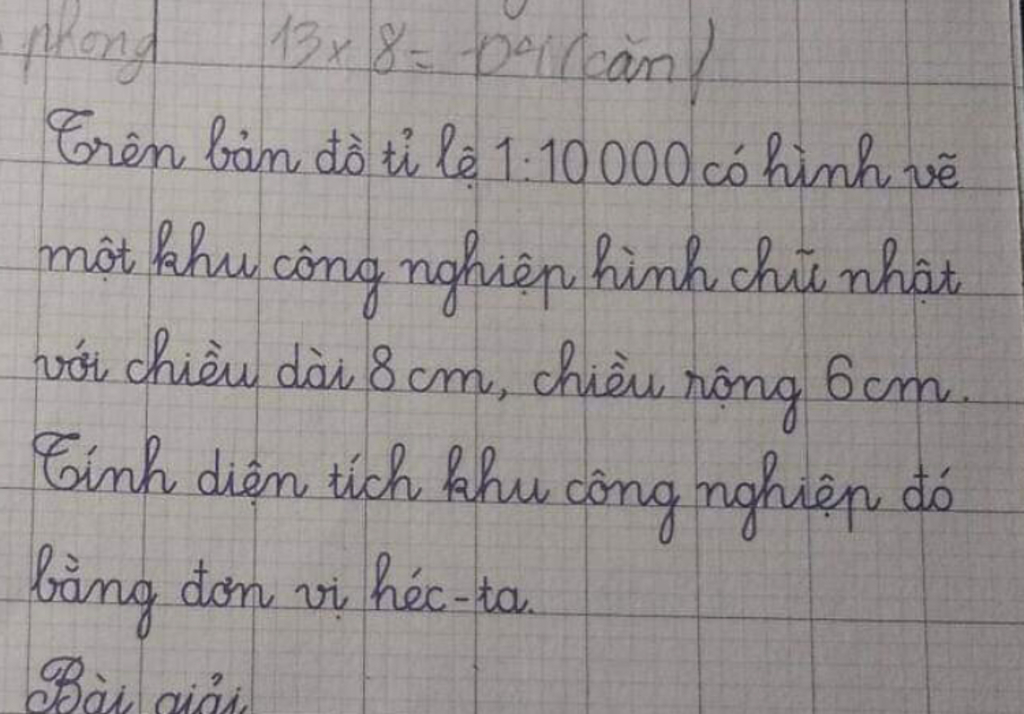 phong 13 x 8 = (căn)
Trên bản đồ tỉ lệ 1:10 000 có hình vẽ
một khu công nghiệp hình chữ nhật
với chiều dài 8cm, chiều rộng 6cm.
Tính diện tích khu công nghiệp đó
bằng đơn vị héc-ta.
Bài giải